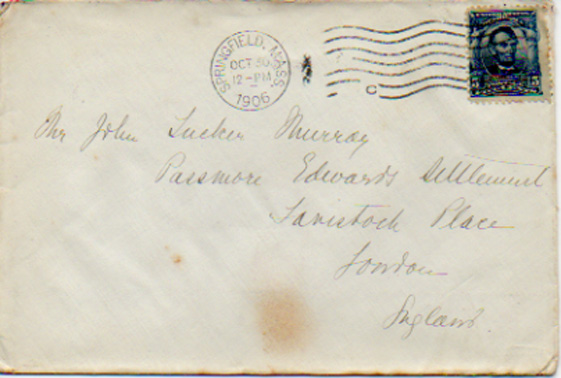 SPRINGFIELD, MASS.
OCT 30
12-PM
1906
C
5 5
Mr John Tucker Murray
Passmore Edwards Settlement
Tavistock Place
London
England.